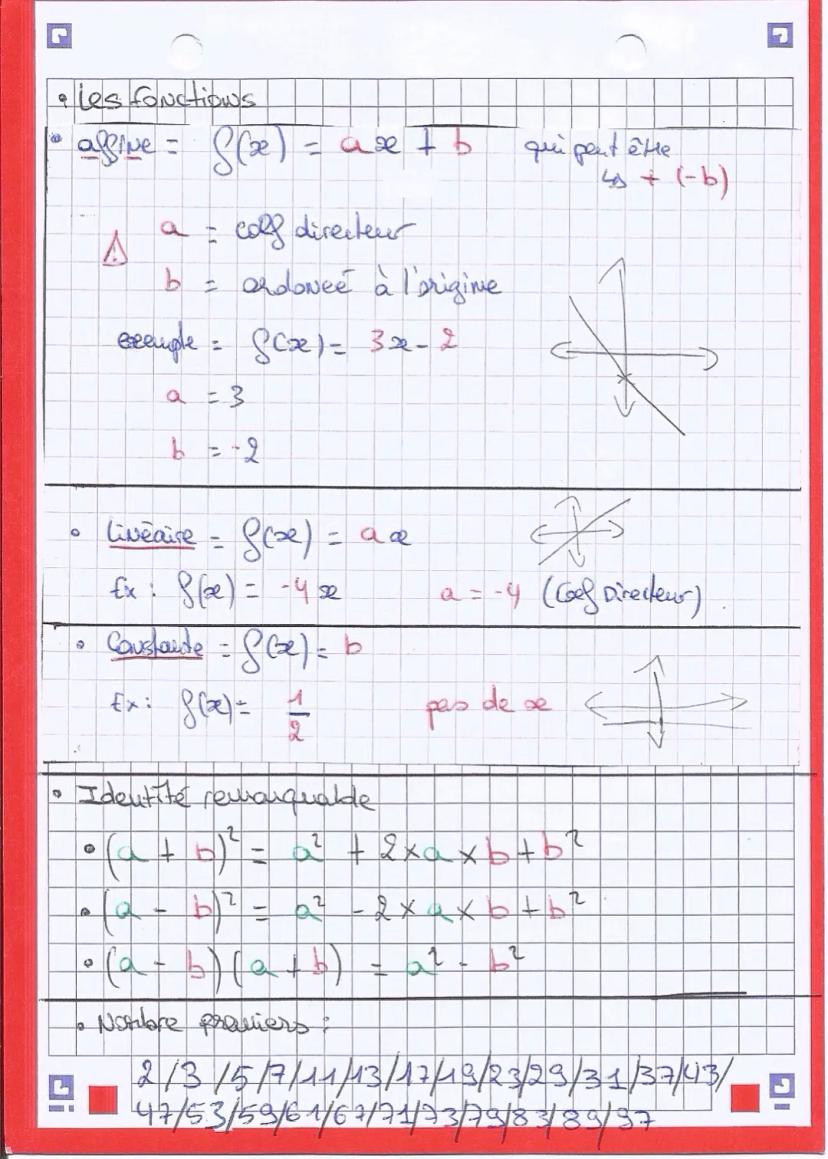 • Les fonctions
• affine = f(x) = ax + b qui peut être
↳ + (-b)
⚠ a = coef directeur
b = ordoneé à l'origine
exemple = f(x) = 3x - 2
a = 3
b = -2
• Linéaire = f(x) = ax
Ex : f(x) = -4x a = -4 (Coef Directeur)
• Constante = f(x) = b
Ex : f(x) = 1/2 pas de x
• Identité remarquable
• (a + b)² = a² + 2×a×b + b²
• (a - b)² = a² - 2×a×b + b²
• (a - b)(a + b) = a² - b²
• Nombre premiers :
2/3/5/7/11/13/17/19/23/29/31/37/43/
47/53/59/61/67/71/73/79/83/89/97